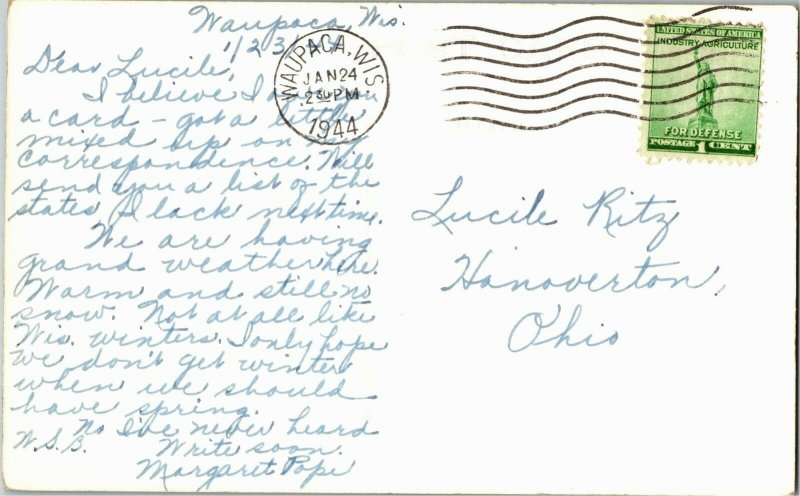 Waupaca, Wis.
1/23/44
Dear Lucile,
I believe I you
a card – got a little
mixed up on my
correspondence. Will
send you a list of the
states I lack next time.
We are having
grand weather here.
Warm and still no
snow. Not at all like
Wis. winters. I only hope
we don't get winter
when we should
have spring.
No I've never heard
W.S.B. Write soon.
Margaret Pope
WAUPACA, WIS.
JAN 24
2 30 PM
1944
UNITED STATES OF AMERICA
INDUSTRY AGRICULTURE
FOR DEFENSE
POSTAGE 1 CENT
Lucile Ritz
Hanoverton,
Ohio